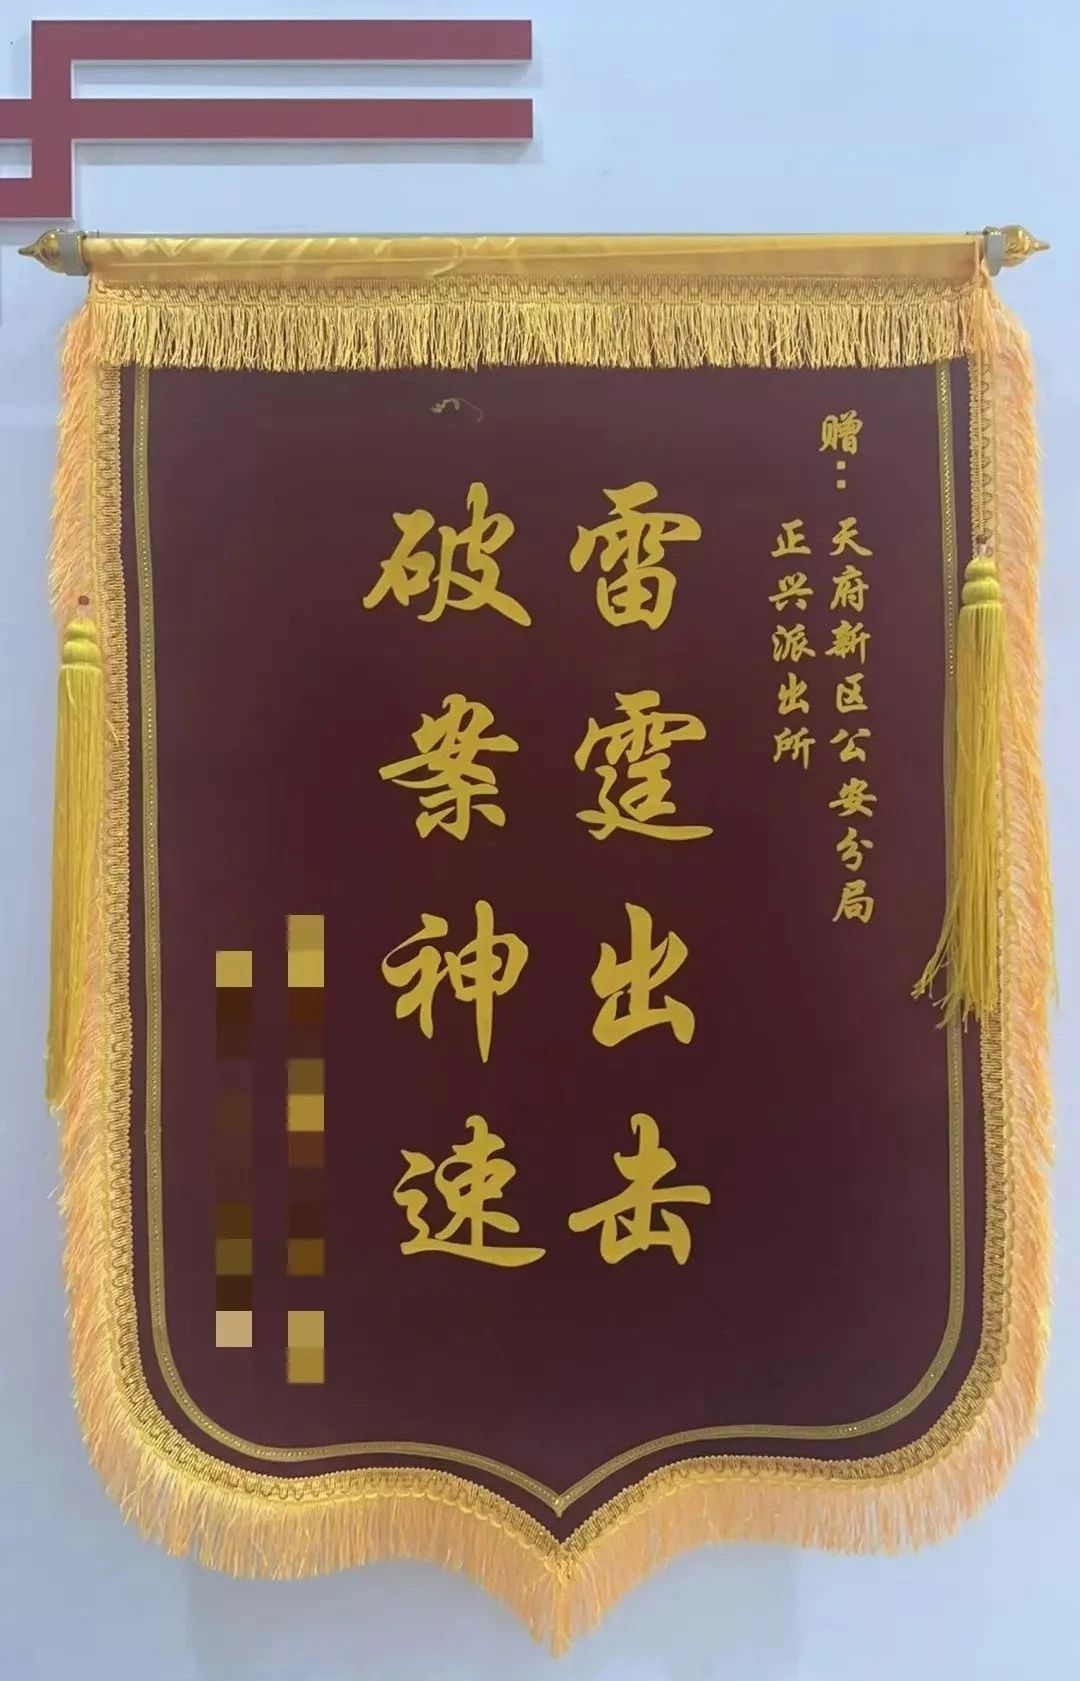 赠：天府新区公安分局
正兴派出所
雷霆出击
破案神速